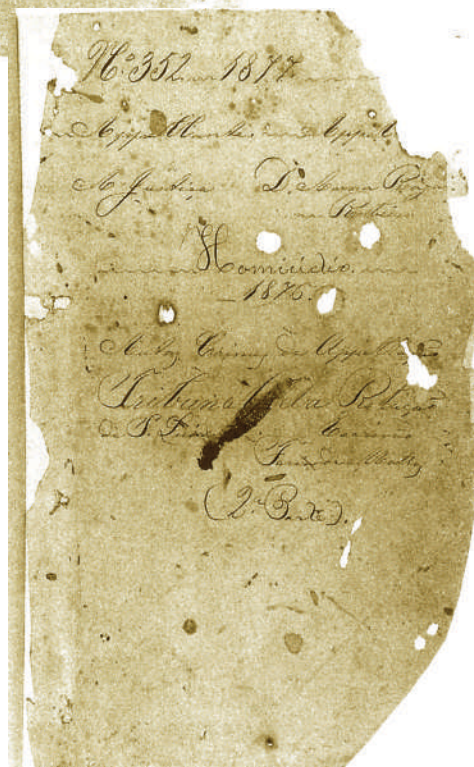 Nº 352 1877
Appellante Appel
A Justiça D. Anna Roza
Ribeiro
Homicidio
1876.
Autos Crimes de Appellação
Tribunal da Relação
de S. Luiz Escrivão
(2ª Parte).